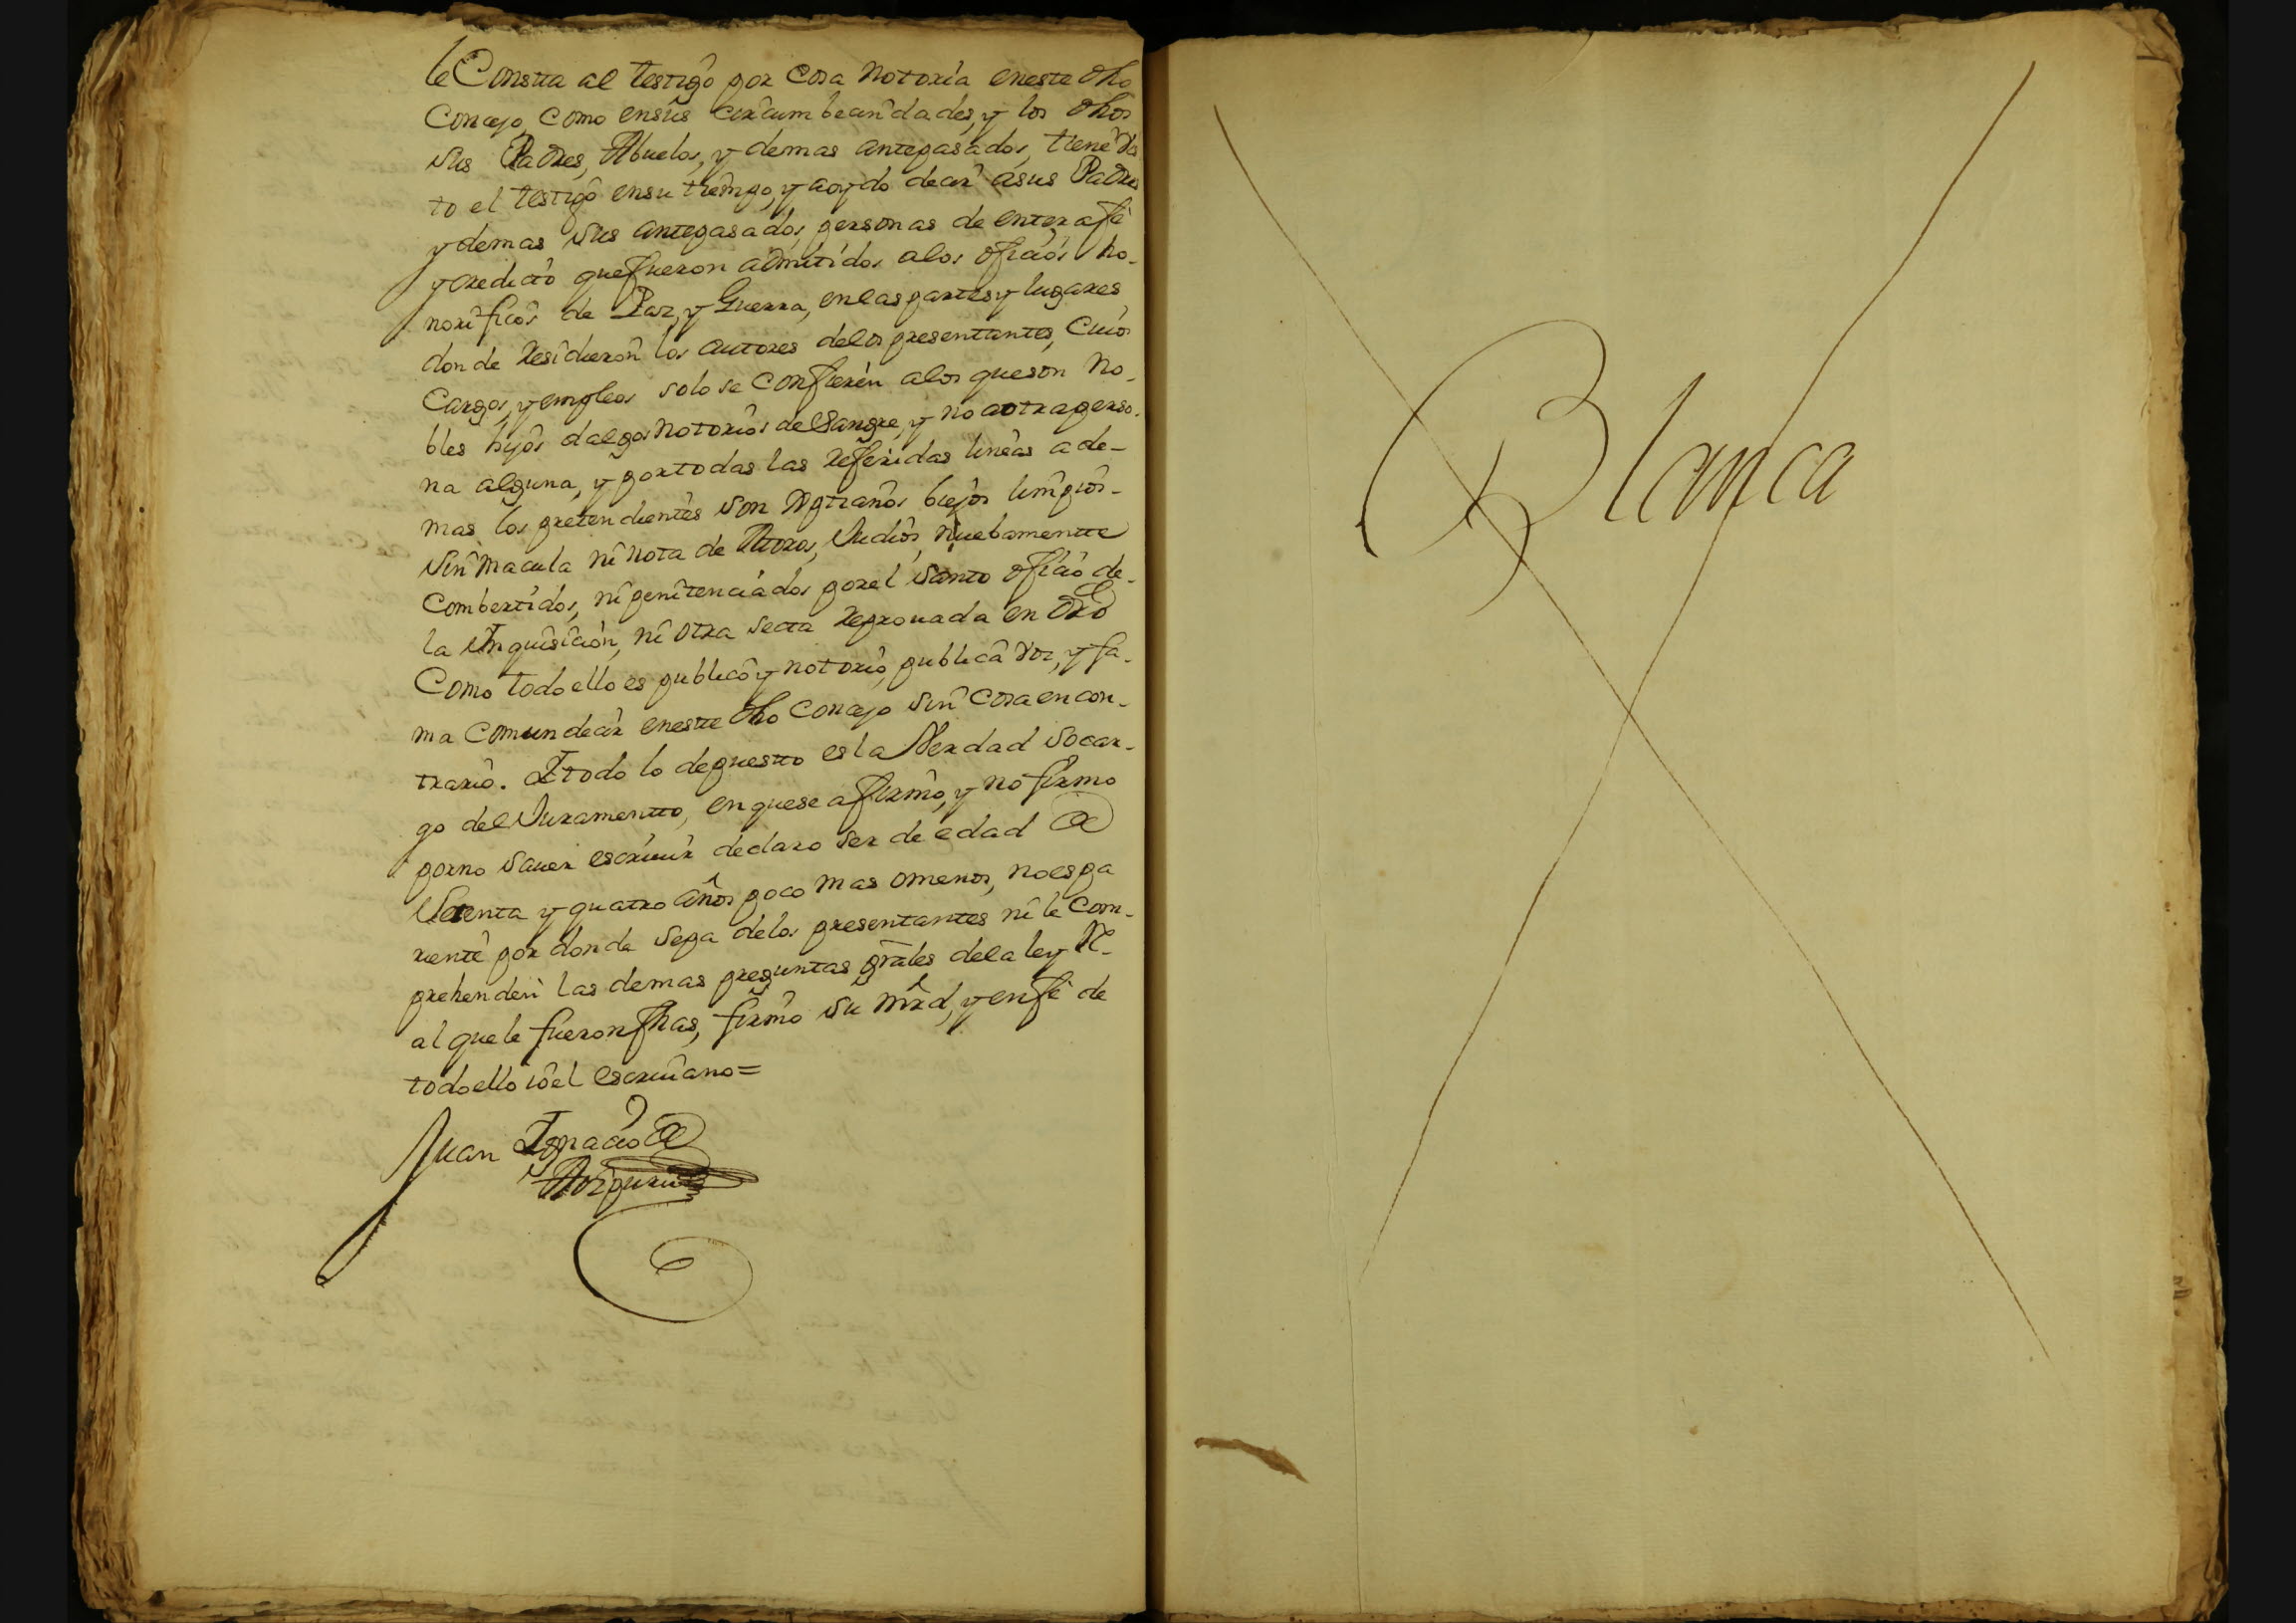 le Consta al testigo por Cosa Notoria eneste dho
Concejo, como ensus circumbecindades, y los dhos
sus Padres, Abuelos, y demas antepasados, tiene vis
to el testigo ensu tiempo, y aoydo decir asus Padres
y demas sus antepasados personas de entera fe
y credicto que fueron admitidos alos oficios ho-
norificos de Paz, y Guerra, enlas partes y lugares
donde Residieron los autores delos presentantes, Cuios
Cargos, y empleos solo se Confieren alos queson No-
bles hijos dalgos Notorios de Sangre, y no aotra perso-
na alguna, y portodas las Referidas lineas ade-
mas los pretendientes son Xptianos biejos limpios-
Sin Macula ni nota de Moros, Judios, Nuebamentte
Combertidos, ni penitenciados porel Santo oficio de-
la Inquisicion, ni otra secta Reprouada en dro
Como todo ello es publico y notorio, publica voz, y fa-
ma Comun decir enestte dho Concejo sin Cosa encon-
trario. Y todo lo depuestto es la Verdad socar-
go del Juramentto, enquese afirmo, y no firmo
porno saver escriuir declaro ser de edad de
Setenta y quatro años poco mas omenos, noes pa
riente por donde sepa delos presentantes ni le Com-
prehenden las demas preguntas grales dela ley Re-
al quele fueron fhas, firmo su mrd, y enfe de
todo ello io el escriuano=
Juan Ignacio de
Aizpuru
Blanca